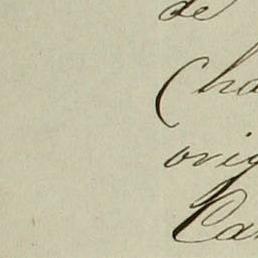 de
Cha
orig
Ca